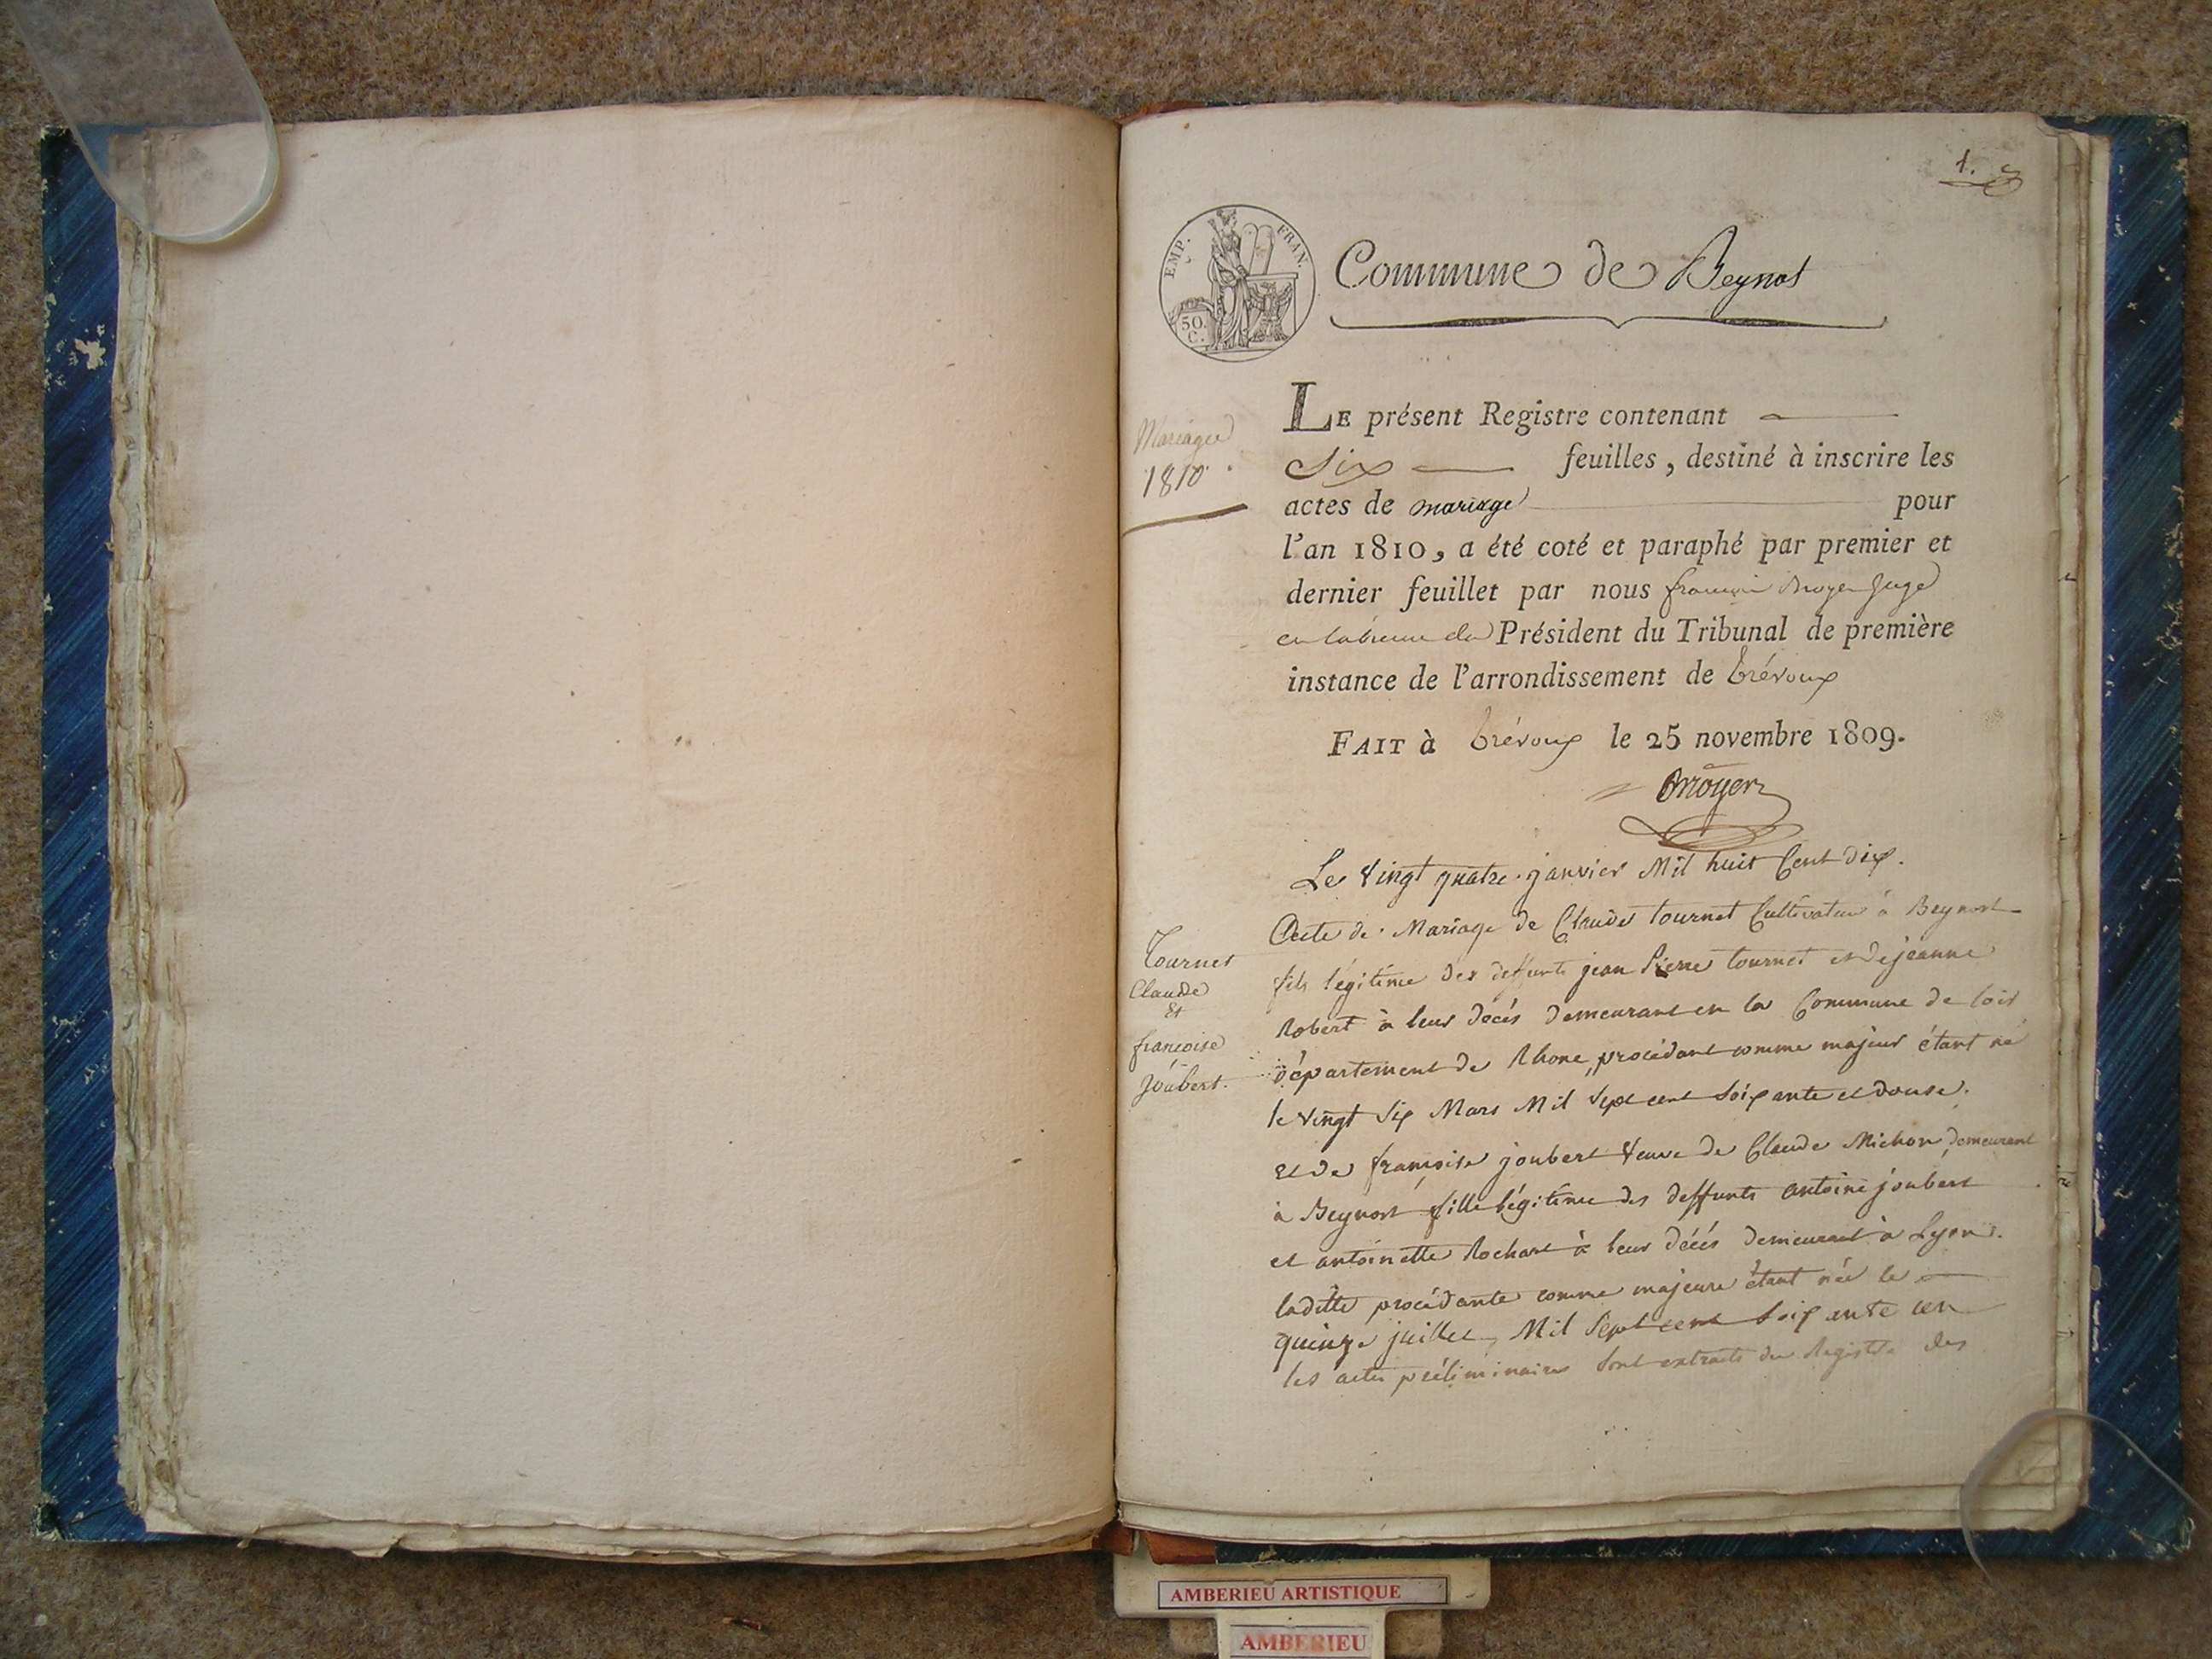 1.
EMP. FRAN.
50. C.
Commune de Beynost
LE présent Registre contenant
Six feuilles, destiné à inscrire les
actes de mariage pour
l'an 1810, a été coté et paraphé par premier et
dernier feuillet par nous françois Moyen Juge
en l'absence du Président du Tribunal de première
instance de l'arrondissement de trévoux
FAIT à trévoux le 25 novembre 1809.
Mariages
1810.
Le vingt quatre janvier Mil huit Cent dix.
Acte de Mariage de Claude tournet Cultivateur à Beynost
fils légitime des deffunts jean Pierre tournet et de jeanne
Robert à leur décés demeurant en la Commune de
département de Rhone, procédant comme majeur étant né
le vingt Six Mars Mil Sept cent Soixante et douse.
Et de françoise joubert Veuve de Claude Michon demeurant
à Beynost fille légitime des deffunts antoine joubert
et antoinette Rochant à leur décés demeurant à Lyon.
laditte procédante comme majeure étant née le
quinze juillet Mil Sept cent Soixante un
les actes préliminaires Sont extraits du Registre des
Tournet
Claude
Et
françoise
Joubert.
AMBERIEU ARTISTIQUE
AMBERIEU